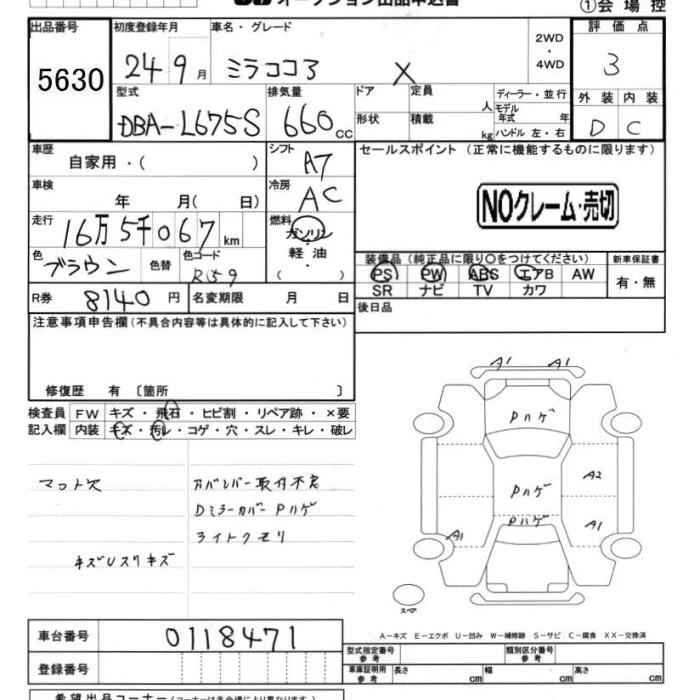 オークション出品申込書
①会場控
出品番号 初度登録年月 車名・グレード 評価点
5630 24 9月 ミラココア X 2WD・4WD 3
型式 排気量 ドア 定員 人 ディーラー・並行 外装 内装
DBA-L675S 660cc 形状 積載 kg モデル年式 年 ハンドル 左・右 D C
車歴 自家用・( ) シフト A7 セールスポイント (正常に機能するものに限ります)
車検 年 月( 日) 冷房 AC
NOクレーム・売切
走行 16万5千067km 燃料 ガソリン 軽油 ・( )
色 ブラウン 色替 色コード R59
装備品(純正品に限り○をつけてください) 新車保証書
PS PW ABS エアB AW 有・無
SR ナビ TV カワ
R券 8140円 名変期限 月 日 後日品
注意事項申告欄(不具合内容等は具体的に記入して下さい)
修復歴 有 〔箇所 〕
検査員 FW キズ・飛石・ヒビ割・リペア跡・×要
記入欄 内装 キズ・汚レ・コゲ・穴・スレ・キレ・破レ
マット欠
キズUスリキズ
Rバンパー取付不良
Dミラーカバー Pハゲ
ライトクモリ
A1 A1
Pハゲ
A2
Pハゲ
Pハゲ
A1 A1
スペア
A−キズ E−エクボ U−凹み W−補修跡 S−サビ C−腐食 XX−交換済
車台番号 0118471
型式指定番号 参考 類別区分番号 参考
登録番号 車庫証明用 参考 長さ cm 幅 cm 高さ cm
希望出品コーナー